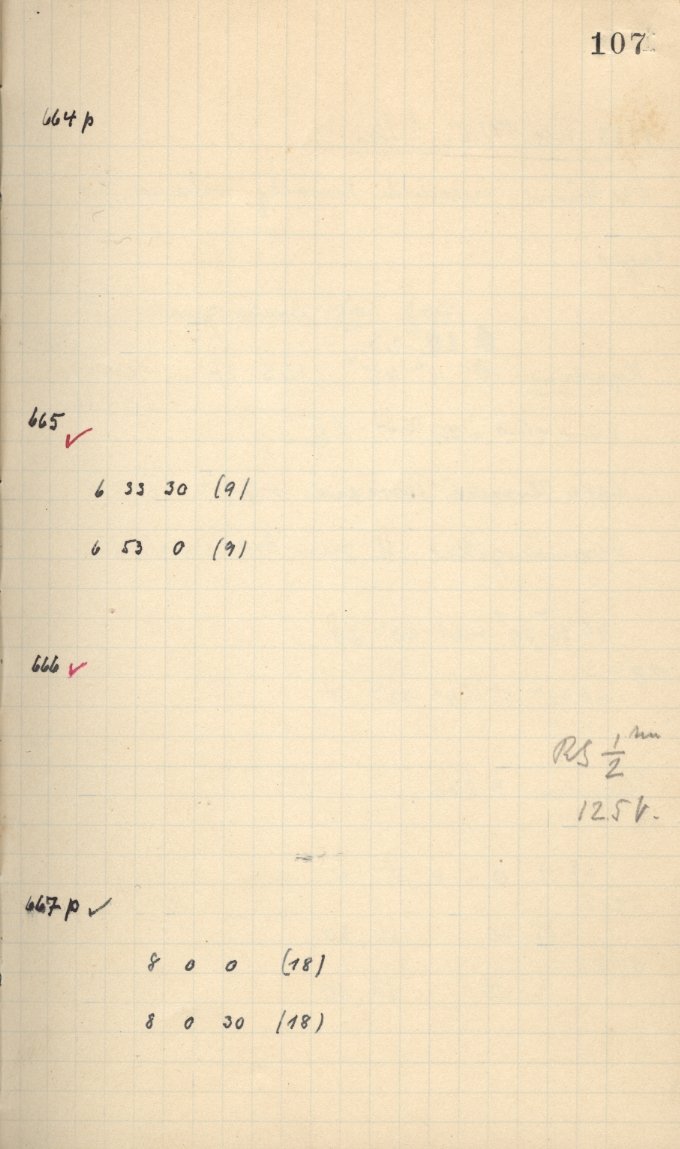 107
664 p
665 ✓
6 33 30 (9)
6 53 0 (9)
666 ✓
RS 1/2 mm
125 V.
667 p ✓
8 0 0 (18)
8 0 30 (18)